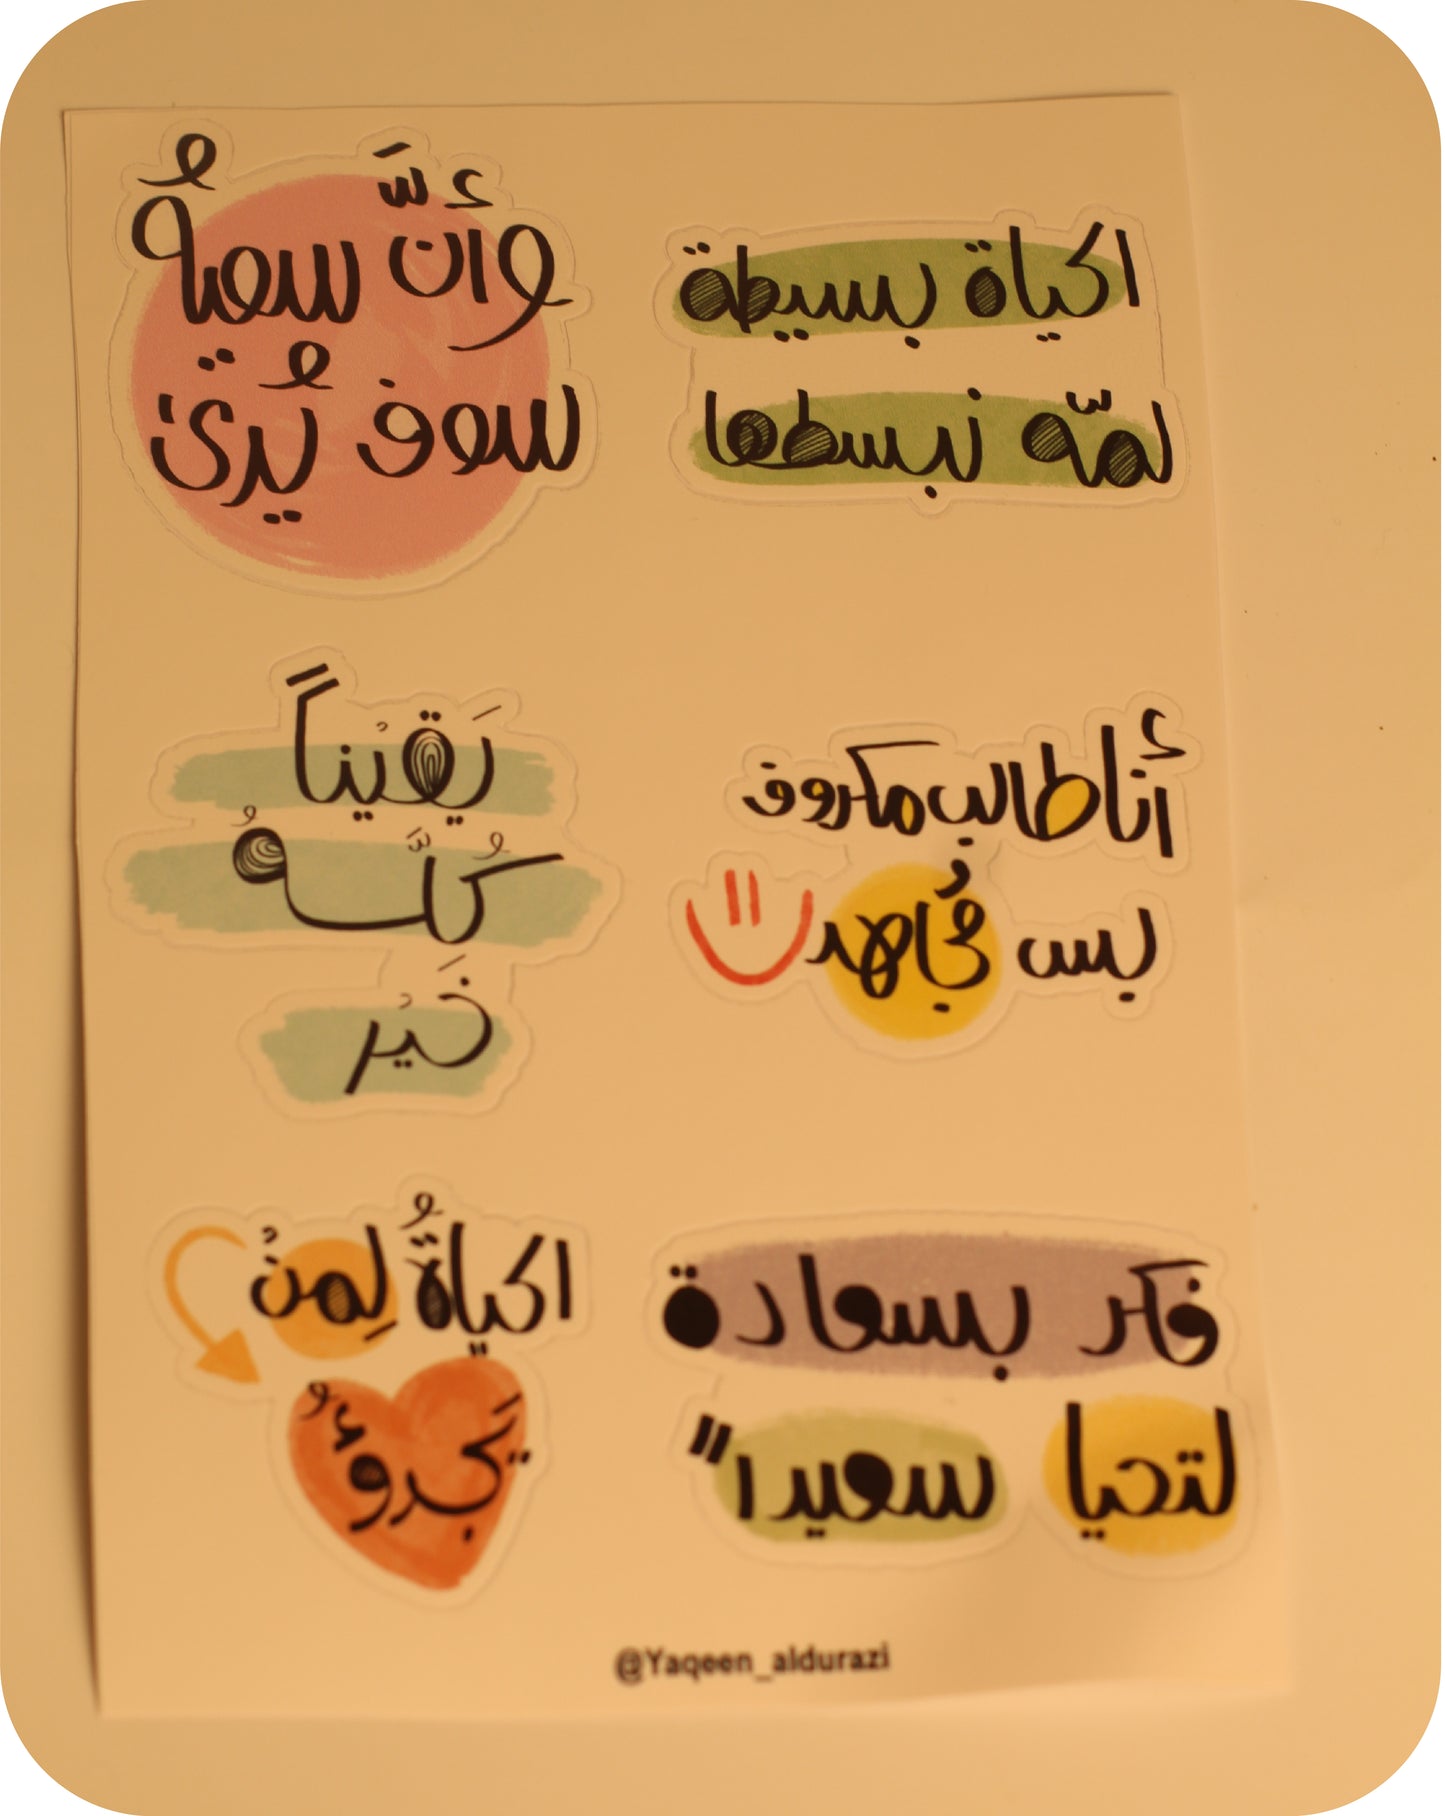 الحياة بسيطة
لمّا نبسطها
وأنّ سعيهُ
سوف يُرىٰ
أنا طالب مكروف
بس مُجاهد
يَقْيْناً
كُلَّهُ
خَيْر
فكر بسعادة
لتحيا سعيداً
الحياةُ لِمنْ
يَجرؤُ
@Yaqeen_aldurazi